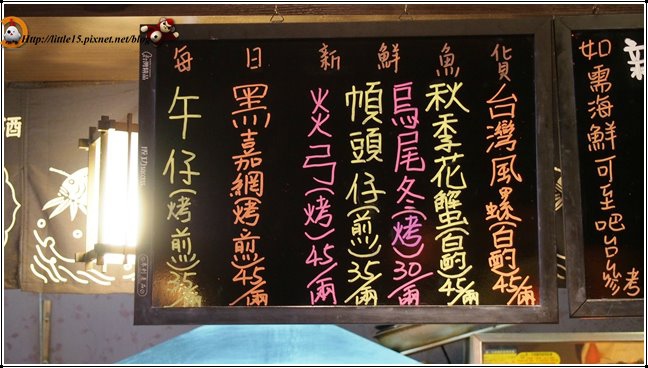 Http://little15.pixnet.net/blog
每日新鮮魚貨
台灣風螺(白酌)45/兩
秋季花蟹(白酌)45/兩
烏尾冬(烤)30/兩
幀頭仔(煎)35/兩
火弓(烤)45/兩
黑嘉網(烤.煎)45/兩
午仔(烤.煎)35/兩
新
如需海鮮可至吧台參考
酒